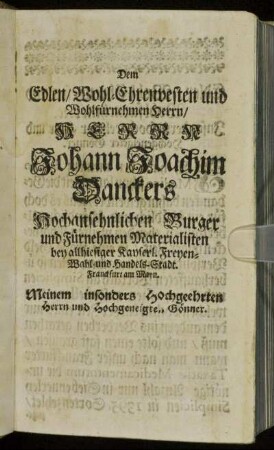 Dem
Edlen/ Wohl-Ehrenvesten und
Wohlfürnehmen Herrn/
HERRN
Johann Joachim
Danckers
Hochansehnlichen Burger
und Fürnehmen Materialisten
bey allhiesiger Kayserl. Freyen-
Wahl-und Handels-Stadt.
Franckfurt am Mayn.
Meinem insonders Hochgeehrten
Herrn und Hochgeneigten Gönner.